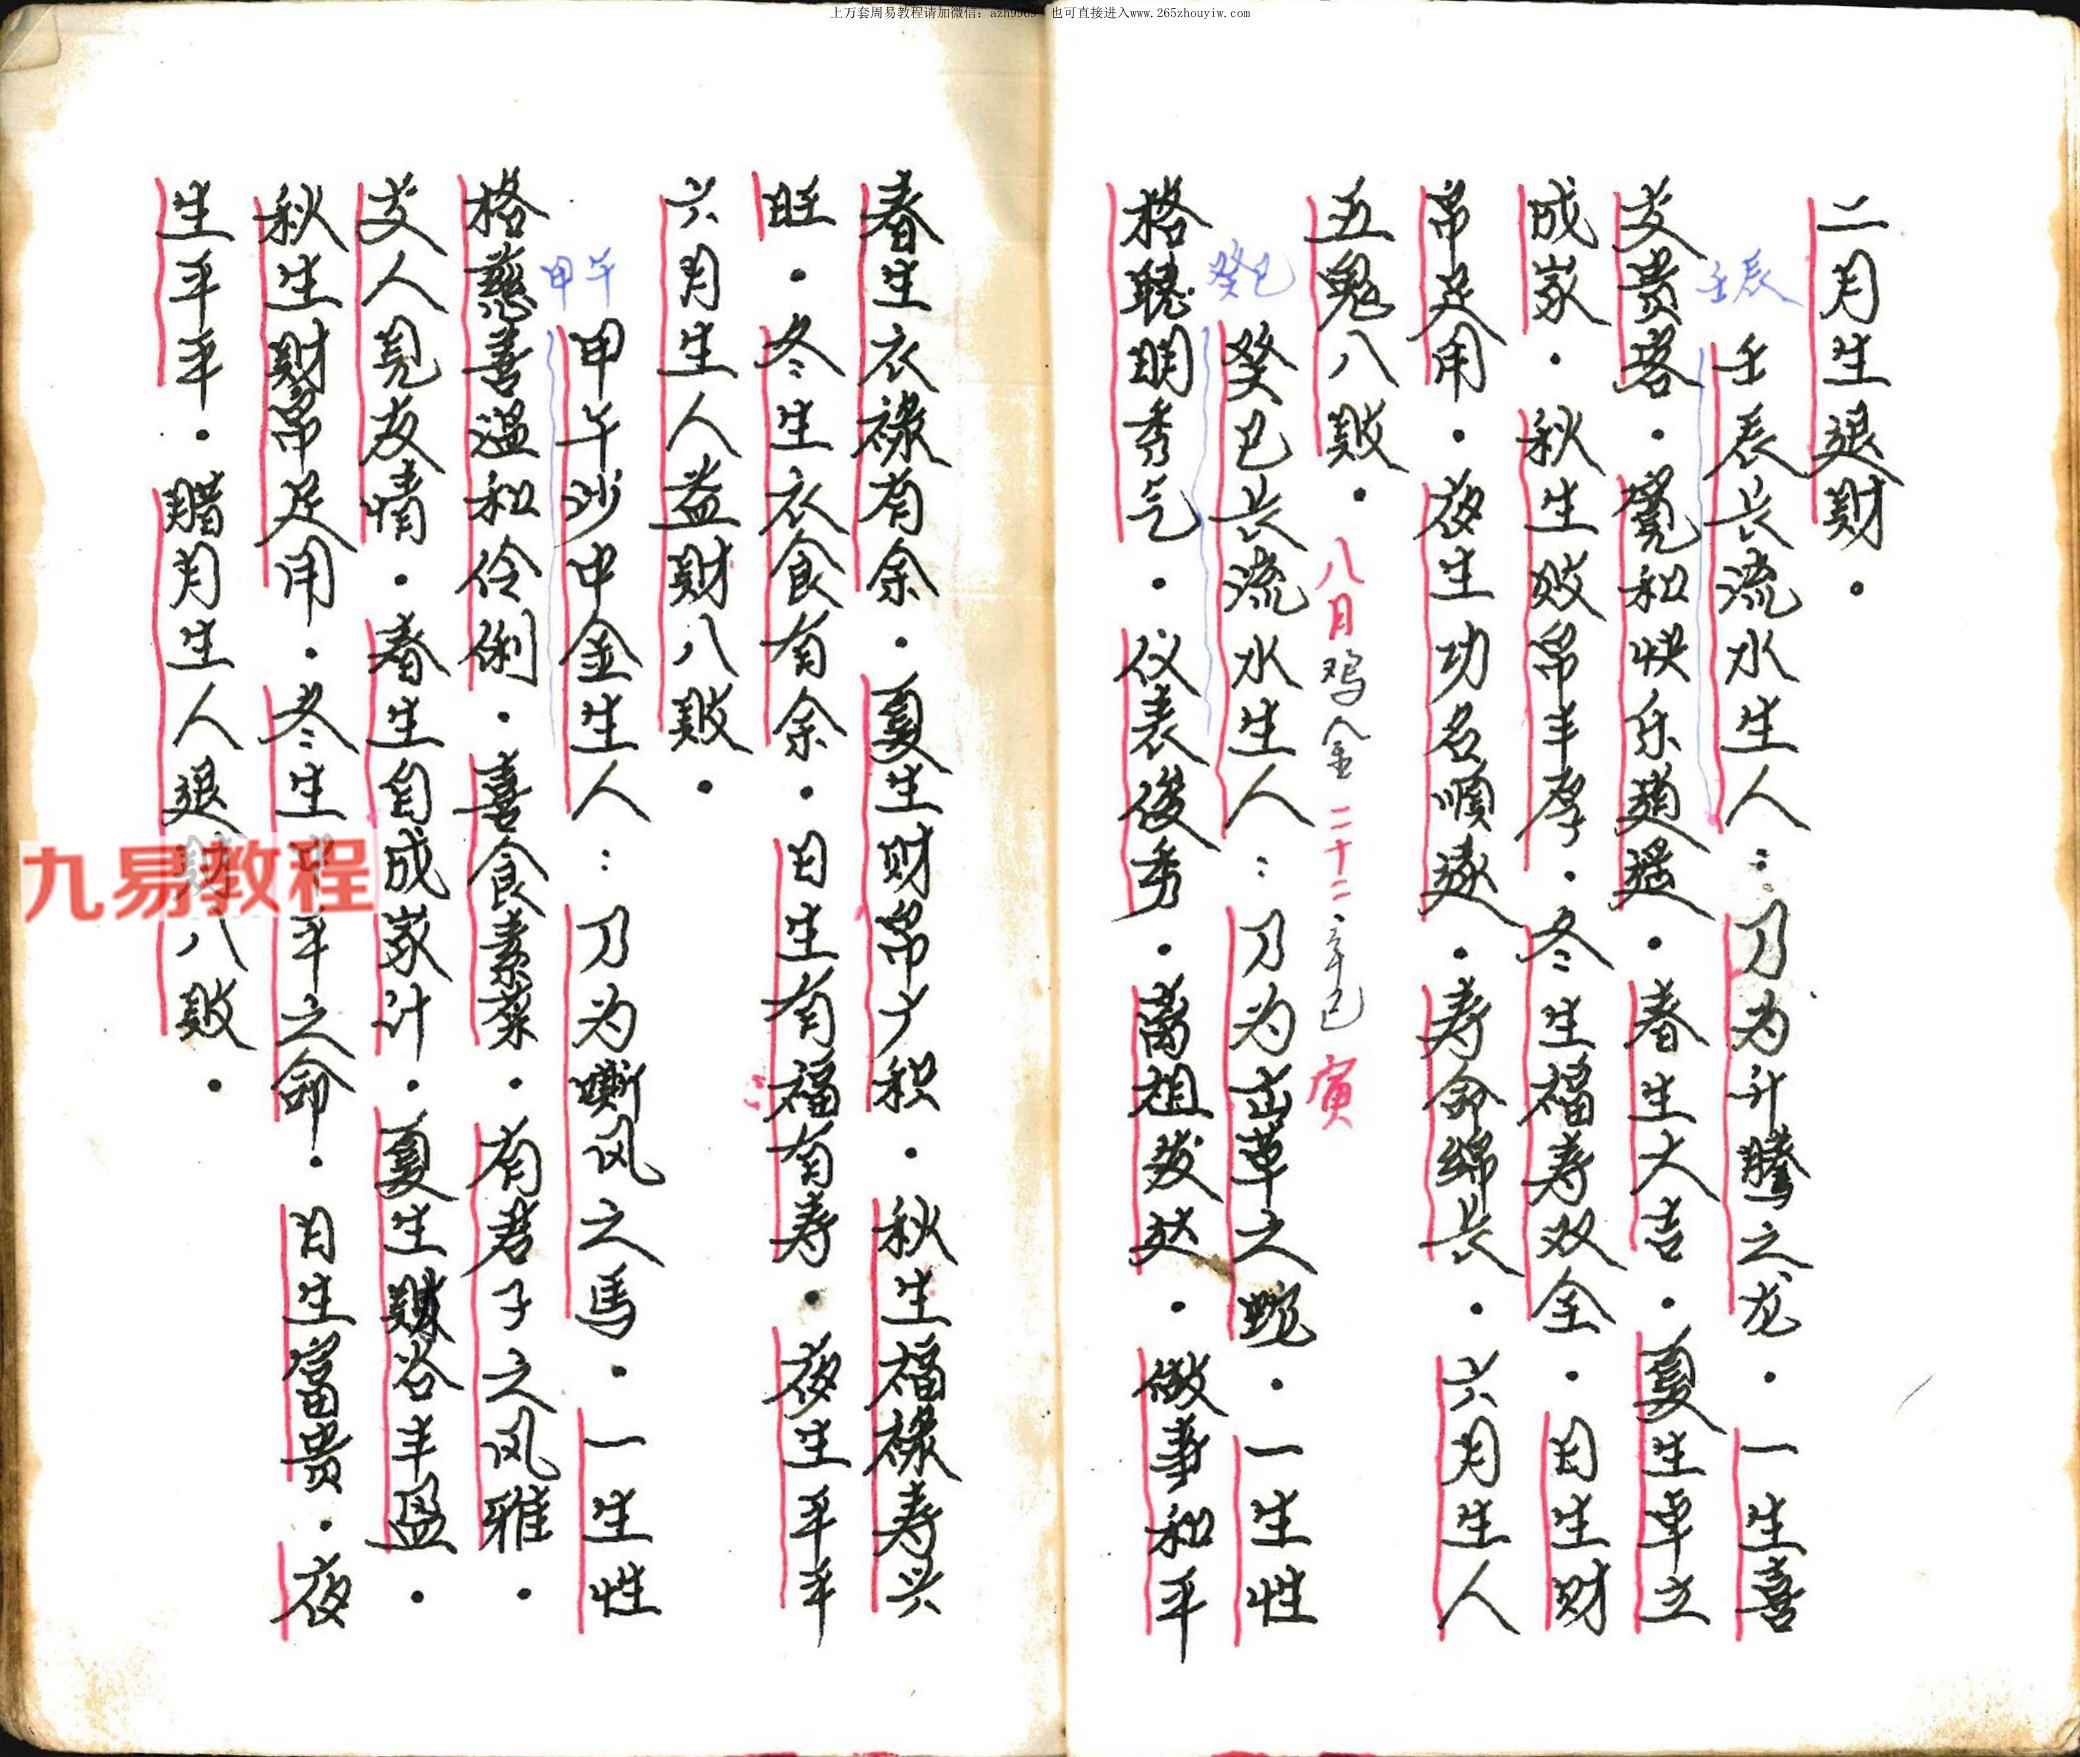 上万套周易教程请加微信：
也可直接进入www.265zhouyiw.com
二月生退财．
壬辰
壬辰长流水生人：乃为升腾之龙．一生喜
交贵客．宽和快乐逍遥．春生大吉．夏生卓立
成家．秋生财帛丰厚．冬生福寿双全．日生财
帛足用．夜生功名顺遂．寿命绵长．六月生人
五鬼八败．八月鸡金二十二辛巳寅
癸巳
癸巳长流水生人：乃为出草之蛇．一生性
格聪明秀气．仪表俊秀．离祖发达．做事和平
春生衣禄有余．夏生财帛广积．秋生福禄寿兴
旺．冬生衣食有余．日生有福有寿．夜生平平
六月生人益财八败．
甲午
甲午沙中金生人：乃为嘶风之馬．一生性
格慈善温和伶俐．喜食素菜．有君子之风雅．
交人见友情．春生自成家计．夏生财谷丰盈．
秋生财帛足用．冬生平之命．日生富贵．夜
生平平．腊月生人退财八败．
九易教程